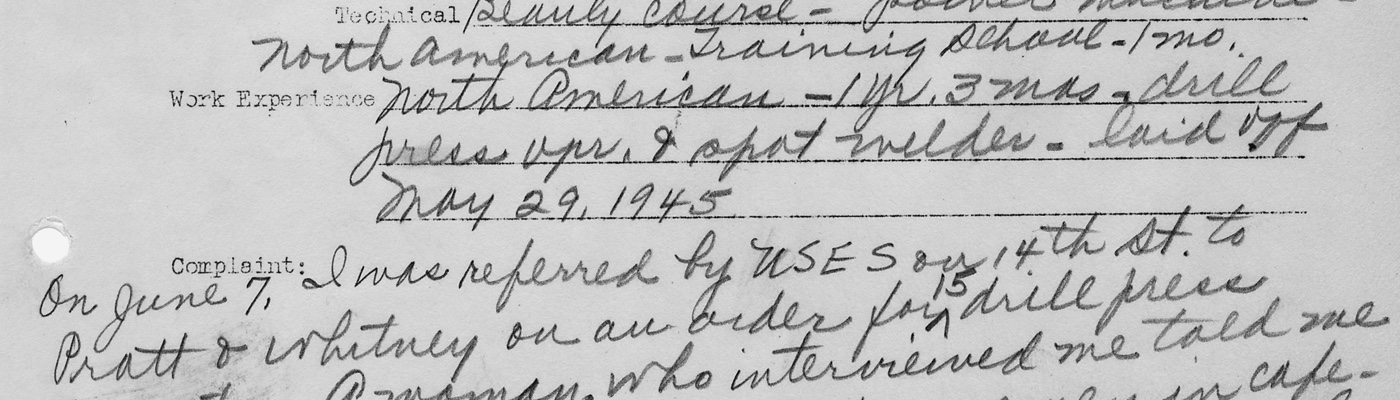 Technical Beauty course - power machine -
North American - Training School - 1 mo.
Work Experience North American - 1 yr. 3 mos - drill
press opr. & spot welder - laid off
May 29, 1945
Complaint: I was referred by USES on 14th St. to
On June 7,
Pratt & Whitney on an order for 15 drill press
A woman who interviewed me told me
in cafe-